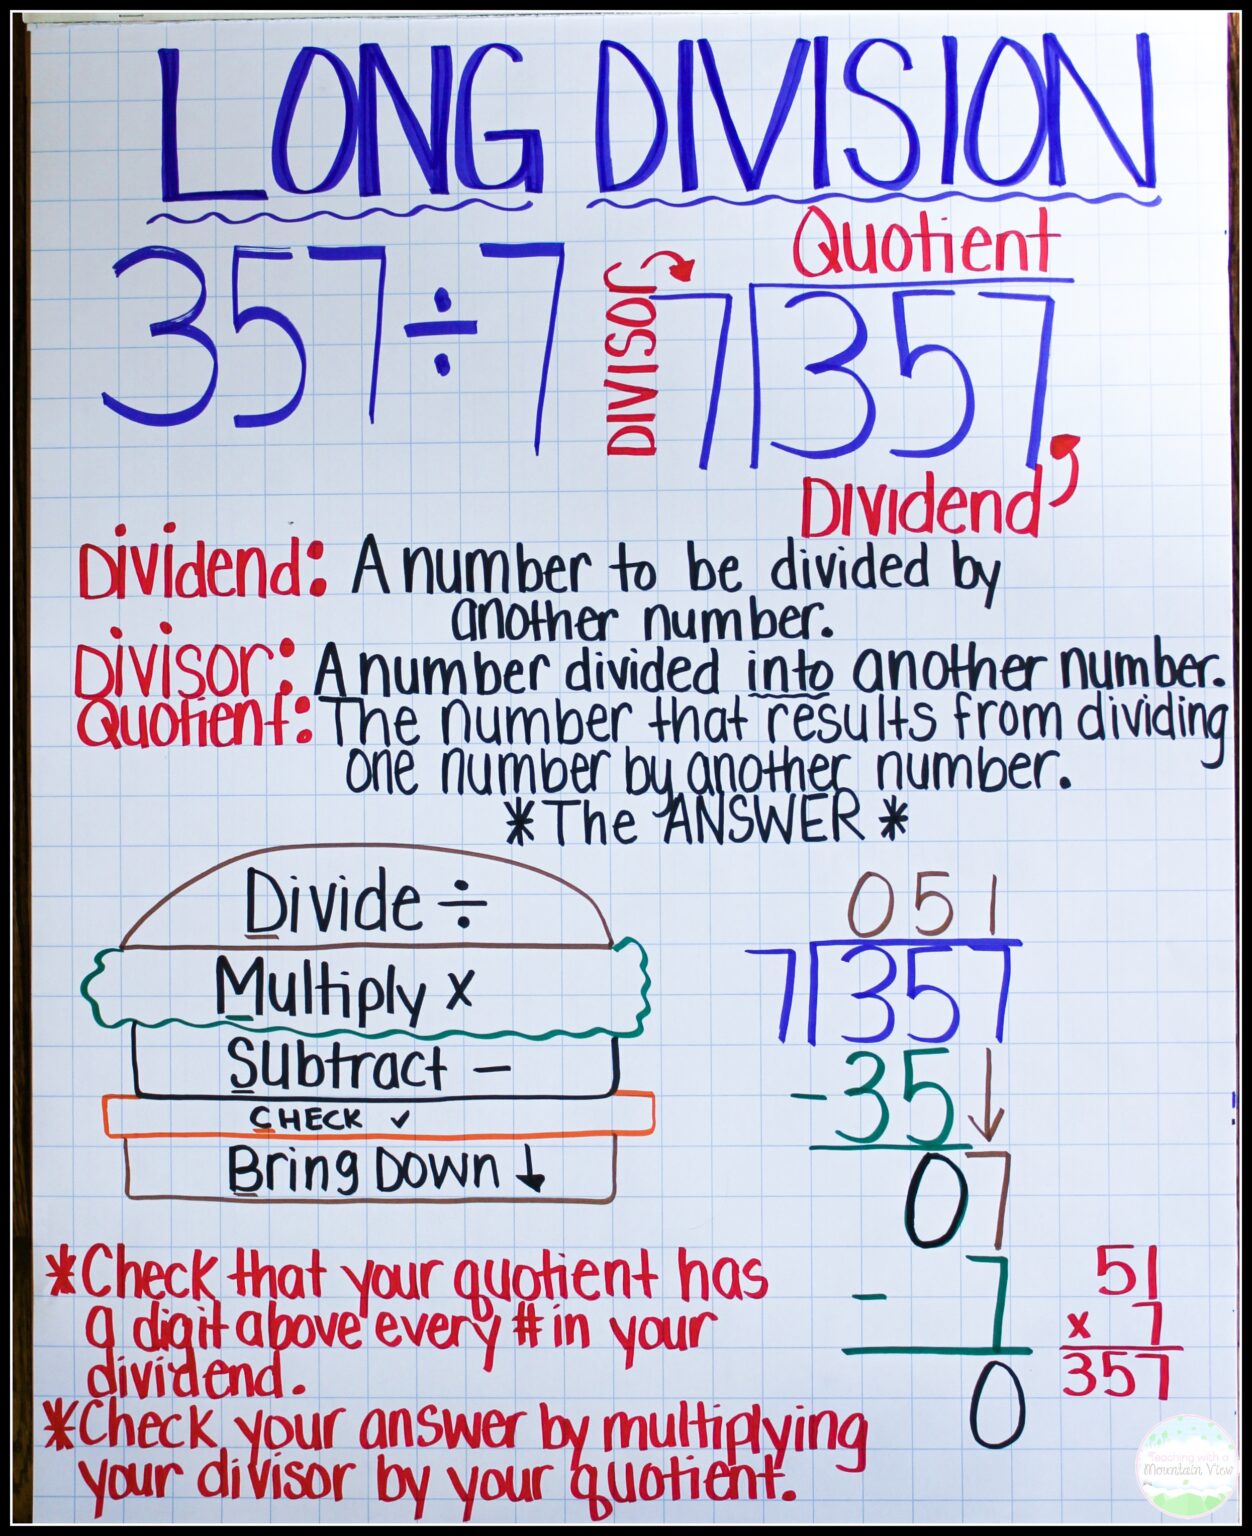 LONG DIVISION
357÷7
Quotient
DIVISOR
7 357
Dividend
Dividend: A number to be divided by
another number.
Divisor: A number divided into another number.
Quotient: The number that results from dividing
one number by another number.
*The ANSWER*
Divide ÷
Multiply x
Subtract −
CHECK ✓
Bring Down ↓
051
7 357
-35↓
07
- 7
0
51
x 7
357
*Check that your quotient has
a digit above every # in your
dividend.
*Check your answer by multiplying
your divisor by your quotient.
Teaching with a
Mountain View